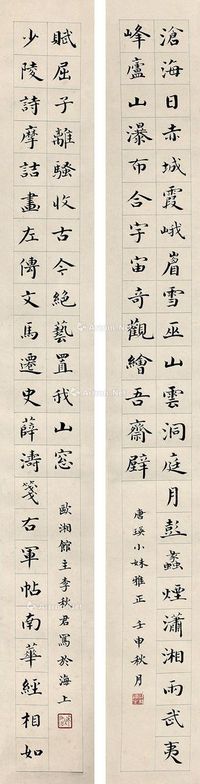 滄海日赤城霞峨眉雪巫山雲洞庭月彭蠡煙瀟湘雨武夷
峰廬山瀑布合宇宙奇觀繪吾齋壁
唐瑛小妹雅正 壬申秋月
少陵詩摩詰畫左傳文馬遷史薛濤箋右軍帖南華經相如
賦屈子離騷收古今絕藝置我山窗
歐湘館主李秋君寫於海上